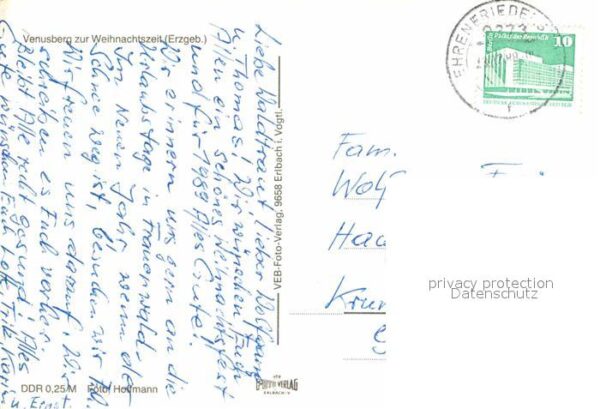 Venusberg zur Weihnachtszeit (Erzgeb.)
Liebe Waldtraut, lieber Wolfgang
u. Thomas! Wir wünschen Euch
Allen ein schönes Weihnachtsfest
und für 1989 Alles Gute.
Wir erinnern uns gern an die
Urlaubstage in Frauenwald.
Im Neuen Jahr, wenn der
Schnee weg ist, besuchen wir
Wir freuen uns darauf. Wir
es Euch vorher.
Bleibt Alle recht gesund! Alles
Gute wünschen Euch Fritz Karin
u. Ernst
DDR 0,25/M Foto: Hoffmann
VEB-Foto-Verlag, 9658 Erlbach i. Vogtl.
VEB
FOTO VERLAG
ERLBACH-V
EHRENFRIEDE
9373
10
Palast der Republik
Fam.
Wolf
Ha
Krum
privacy protection
Datenschutz